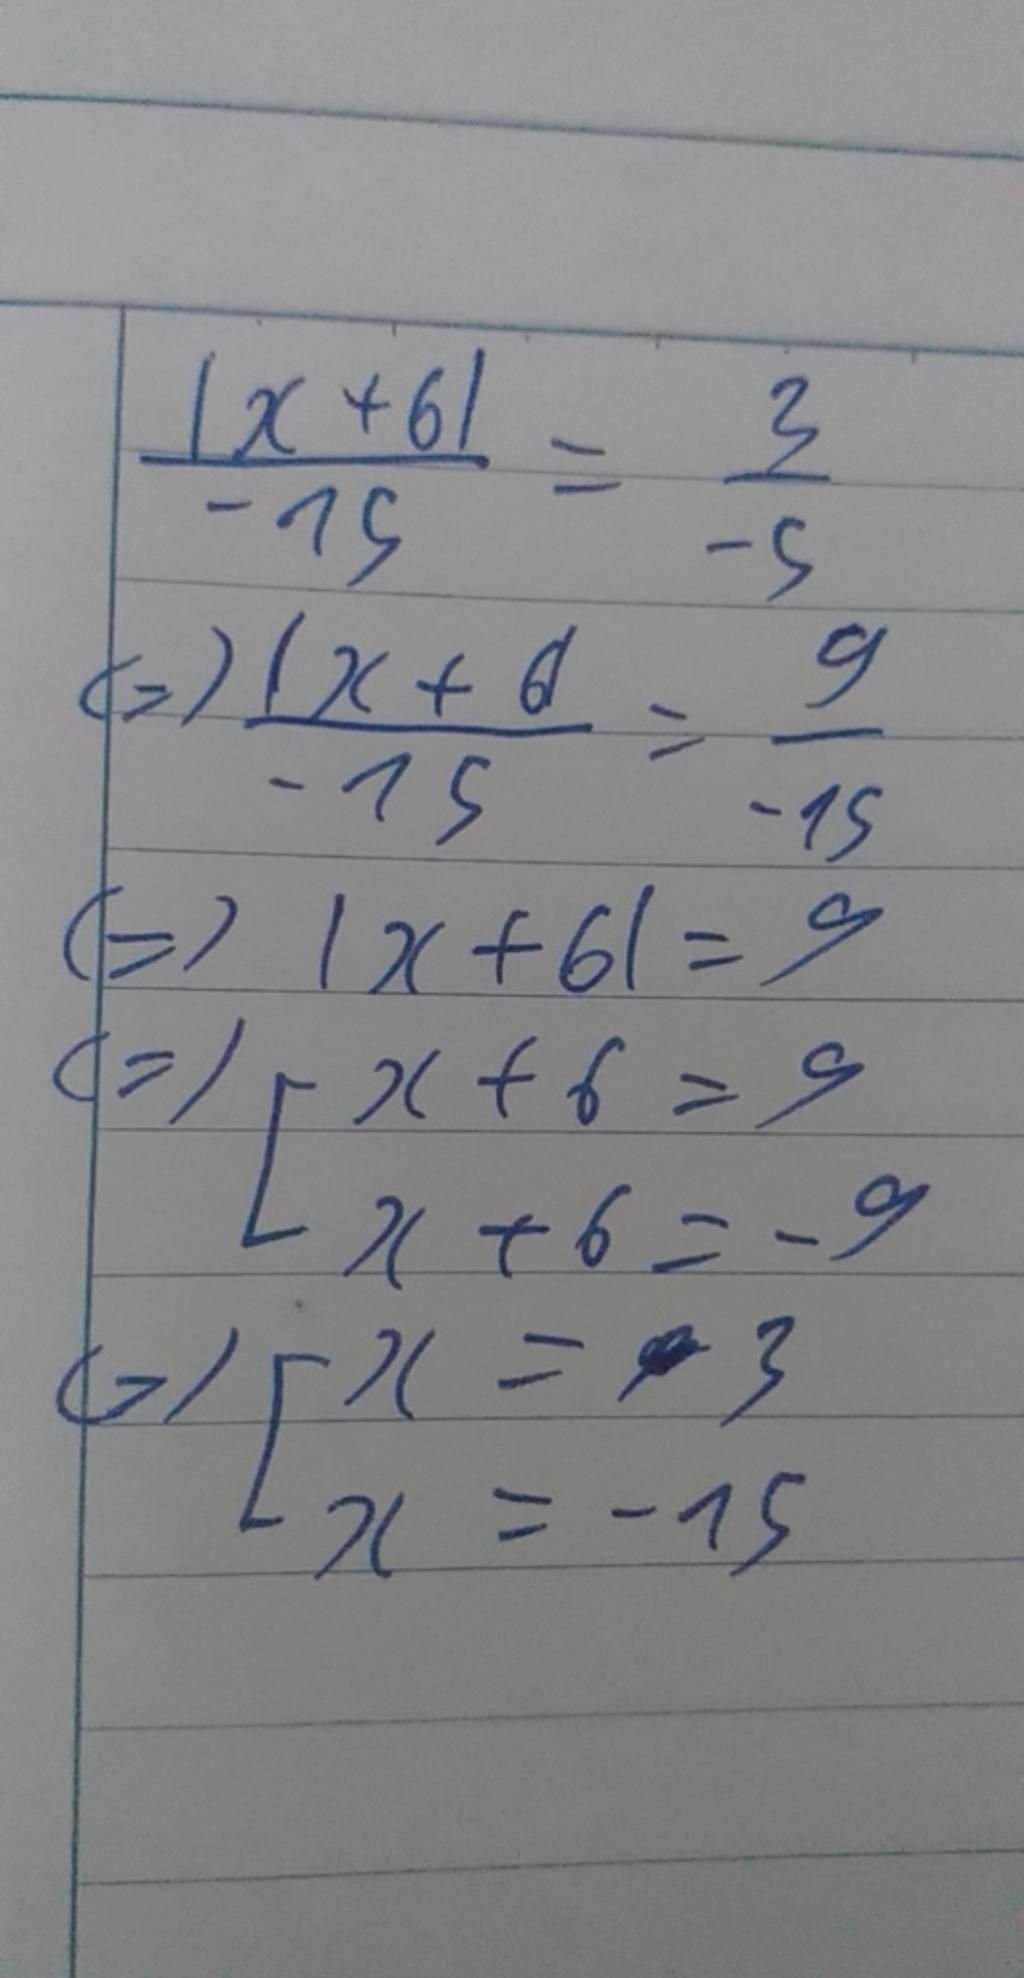 |x+6|/-15 = 3/-5
(=) |x+6|/-15 = 9/-15
(=) |x+6| = 9
(=) [ x+6 = 9
x+6 = -9
(=) [ x = 3
x = -15